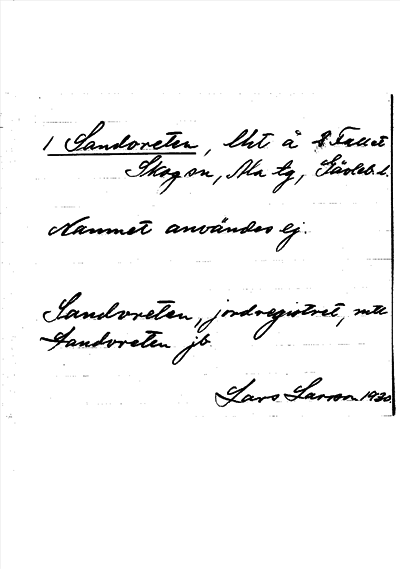 1 Sandvreten, lht å Fallet
Skog sn, Ala tg, Gävleb. l.
Namnet användes ej.
Sandvreten, jordregistret, mtl
Sandvreten jb.
Lars Larsson 1930.